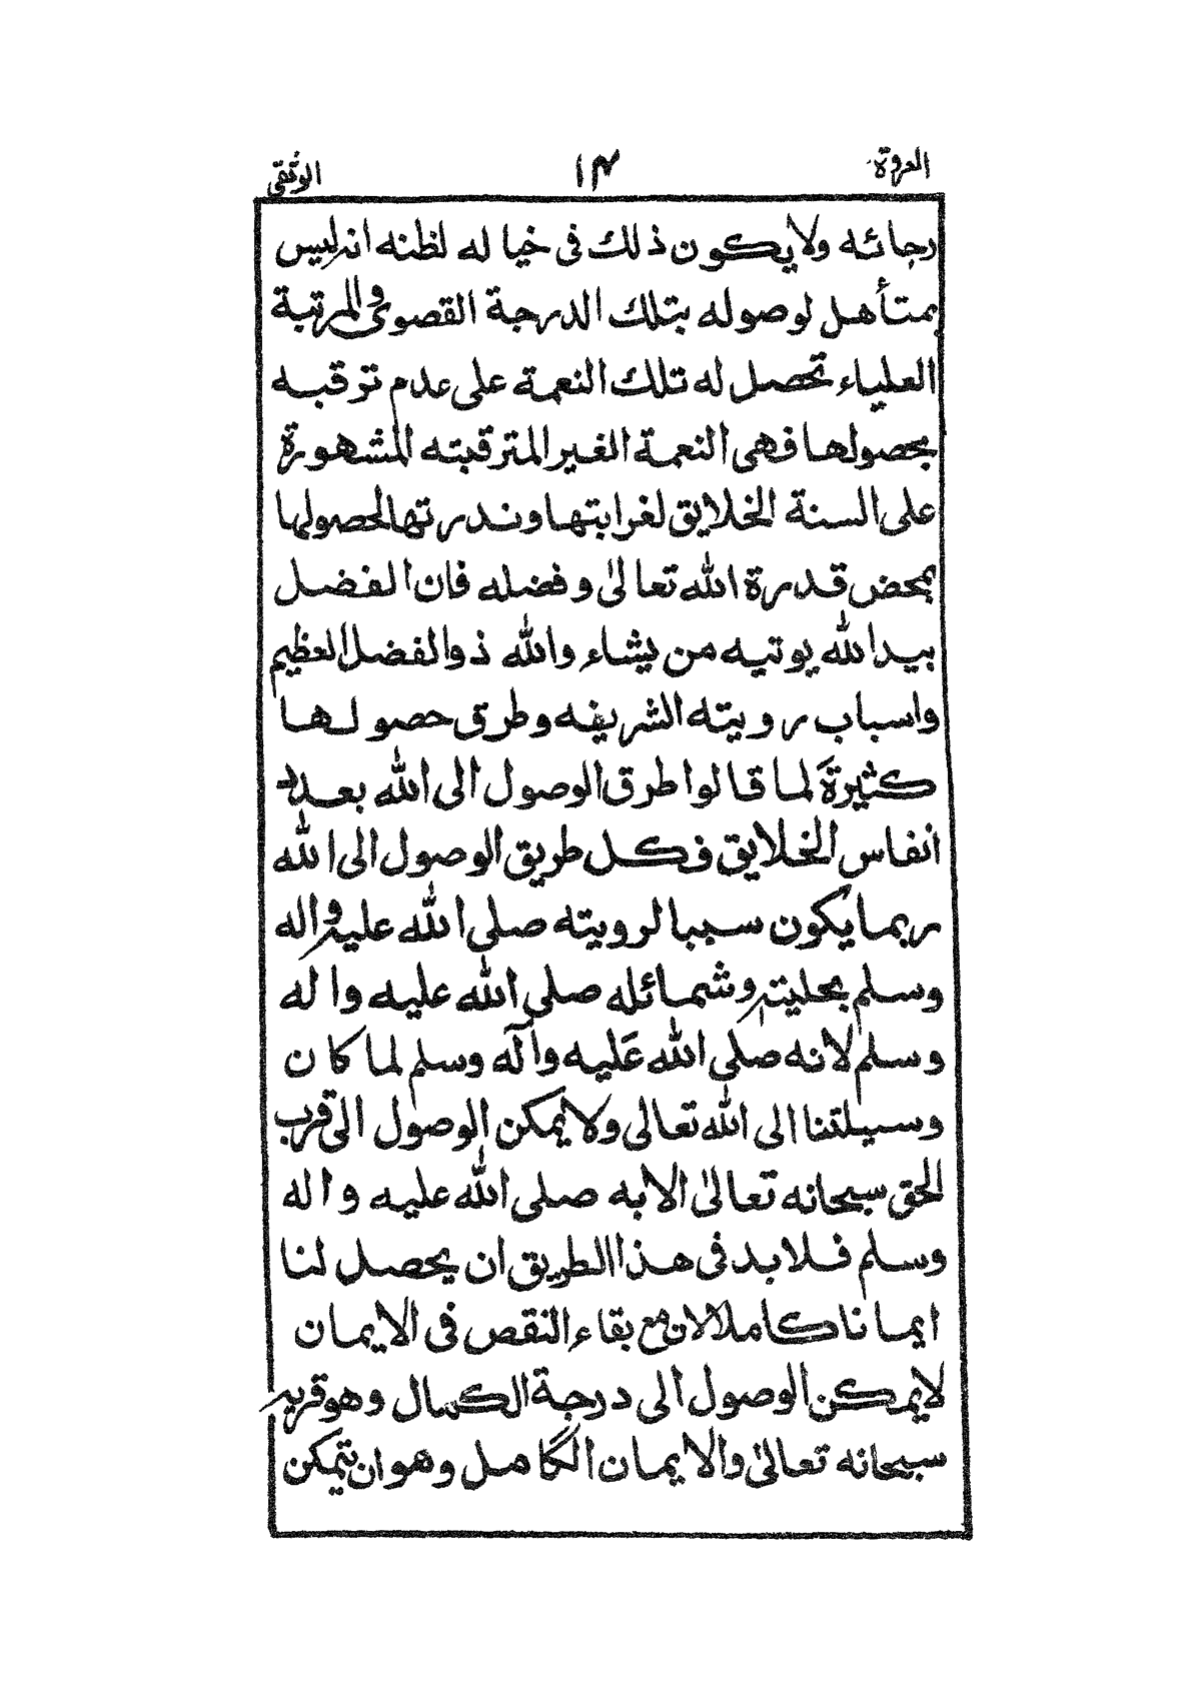 العروة ١٤ الوثقى
رجائه ولايكون ذلك فى خياله لظنه انه ليس
بمتأهل لوصوله بتلك الدرجة القصوى والمرتبة
العلياء تحصل له تلك النعمة على عدم ترقبه
بحصولها فهى النعمة الغير المترقبته المشهورة
على السنة الخلايق لغرابتها وندرتها لحصولها
بمحض قدرة الله تعالىٰ وفضله فان الفضل
بيد الله يوتيه من يشاء والله ذوالفضل العظيم
واسباب رويته الشريفه وطرق حصولها
كثيرةَ لما قالوا طرق الوصول الى الله بعدد
انفاس الخلايق فكل طريق الوصول الى الله
ربما يكون سببا لرويته صلى الله عليه واله
وسلم بحليته وشمائله صلى الله عليه واله
وسلم لانه صلى الله عَليه وآله وسلم لما كان
وسيلتنا الى الله تعالى ولايمكن الوصول الى قرب
الحق سبحانه تعالىٰ الابه صلى الله عليه واله
وسلم فلابد فى هذا الطريق ان يحصل لنا
ايمانا كاملا لان مع بقاء النقص فى الايمان
لايمكن الوصول الى درجة الكمال وهو قربه
سبحانه تعالىٰ والايمان الكامل وهو ان يتمكن